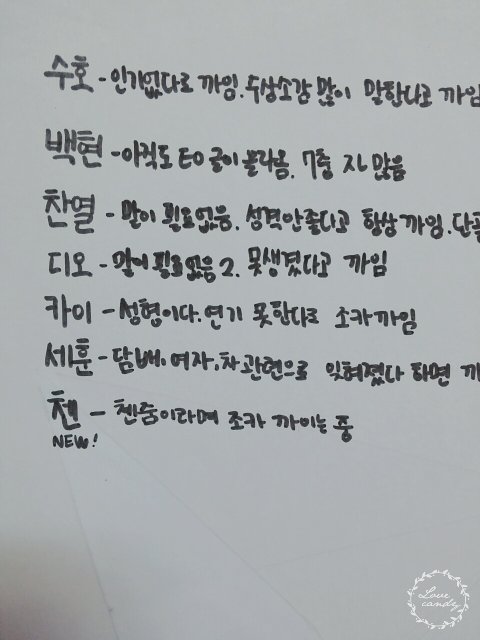 수호 - 인기없다로 까임. 수상소감 많이 말한다고 까임
백현 - 아직도 EO 글이 올라옴. 7층 자 많음
찬열 - 말이 필요없음. 성격안좋다고 항상 까임. 단골
디오 - 말이 필요없음2. 못생겼다고 까임
카이 - 성형이다. 연기 못한다로 조카까임
세훈 - 담배, 여자, 차 관련으로 잊혀졌다 하면 까
첸 - 첸줌이라며 조카 까이는 중
NEW!
Love
candy